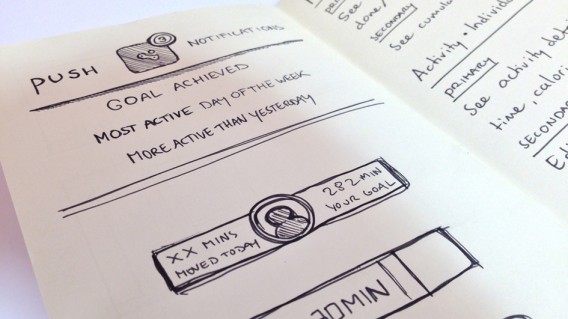 PUSH NOTIFICATIONS
3
GOAL ACHIEVED
MOST ACTIVE DAY OF THE WEEK
MORE ACTIVE THAN YESTERDAY
XX MINS
MOVED TODAY
282 MIN
YOUR GOAL
See
done/
SECONDARY
See cumul
Activity • Individ
PRIMARY
See activity det
time, calori
SECOND
Ed